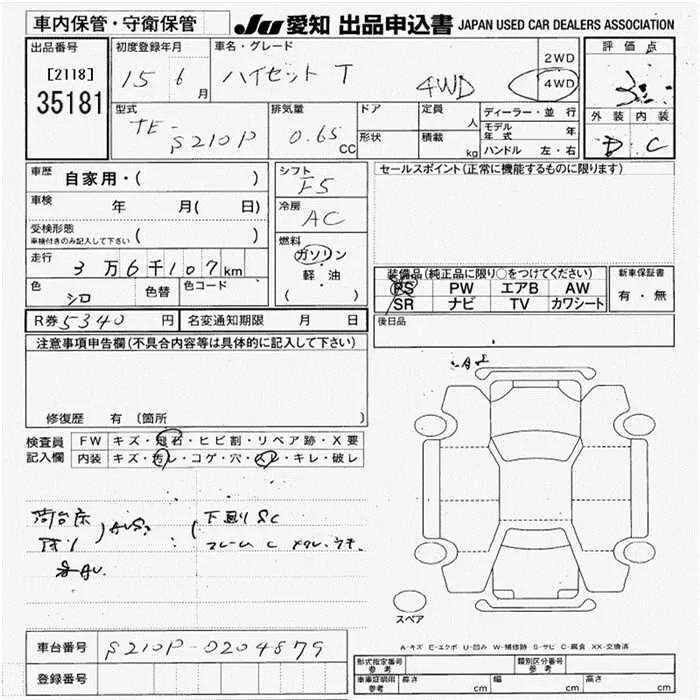 車内保管・守衛保管 JU 愛知 出品申込書 JAPAN USED CAR DEALERS ASSOCIATION
出品番号 初度登録年月 車名・グレード 評価点
[2118] 15 6月 ハイゼット T 4WD 2WD
35181 4WD
型式 排気量 ドア 定員 ディーラー・並行 外装 内装
TE- 人 モデル年式 年
S210P 0.65 CC 形状 積載 kg ハンドル 左・右 D C
車歴 自家用・( ) シフト F5 セールスポイント(正常に機能するものに限ります)
車検 年 月( 日) 冷房 AC
受検形態 ( )
車検付きのみ記入して下さい
燃料
走行 3万6千107km ガソリン
色 シロ 色替 色コード 軽・油
( )
装備品(純正品に限り○をつけてください) 新車保証書
PS PW エアB AW 有・無
SR ナビ TV カワシート
R券 5340円 名変通知期限 月 日 後日品
注意事項申告欄(不具合内容等は具体的に記入して下さい)
修復歴 有 (箇所 )
検査員 FW キズ・飛石・ヒビ割・リペア跡・X要
記入欄 内装 キズ・汚レ・コゲ・穴・スレ・キレ・破レ
荷台床 下廻り SC
フレーム C
スペア
A-キズ E-エクボ U-凹み W-補修跡 S-サビ C-腐食 XX-交換済
車台番号 S210P-0204879
登録番号
形式指定番号 参考 類別区分番号 参考
車庫証明用 参考 長さ cm 幅 cm 高さ cm